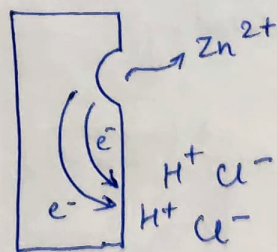 Zn²⁺
e⁻
H⁺ Cl⁻
e⁻
H⁺ Cl⁻